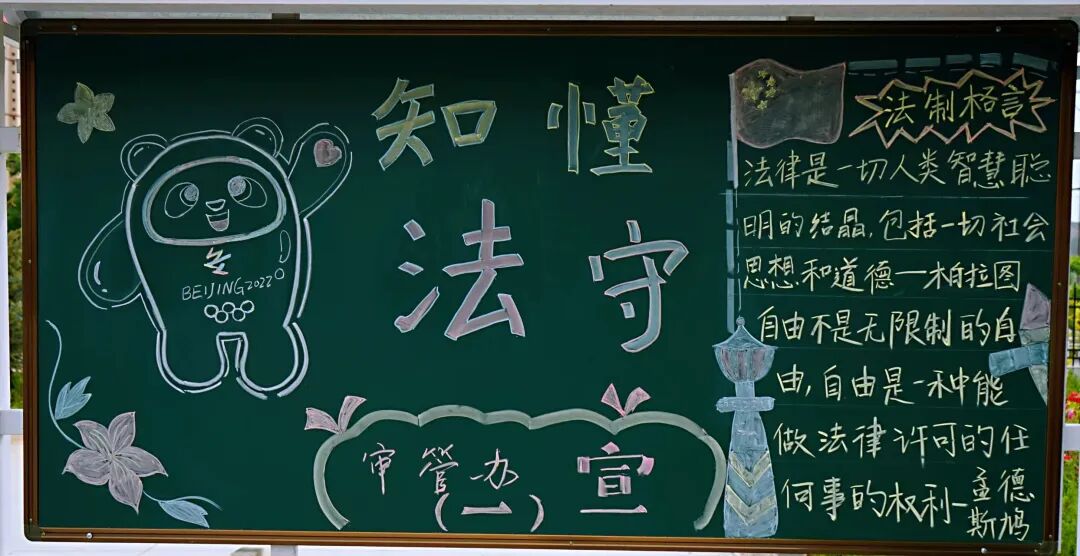 知 懂
法 守
BEIJING 2022
审管办 宣
(一)
法制格言
法律是一切人类智慧聪
明的结晶,包括一切社会
思想和道德—柏拉图
自由不是无限制的自
由,自由是一种能
做法律许可的任
何事的权利—孟德
斯鸠